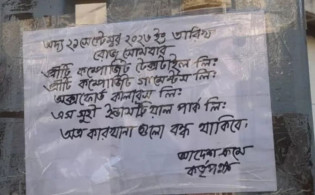 অদ্য ২৯সেপ্টেম্বর ২০২৩ ইং তারিখ
রোজ সোমবার
আর্টি কম্পোজিট টেক্সটাইল লিঃ
আর্টি কম্পোজিট গার্মেন্টস লিঃ
অক্সফোর্ড কালারস লিঃ
এস সুহী ইন্ডাসট্রিয়াল পার্ক লিঃ
অত্র কারখানা গুলো বন্ধ থাকিবে।
আদেশ ক্রমে
কর্তৃপক্ষ